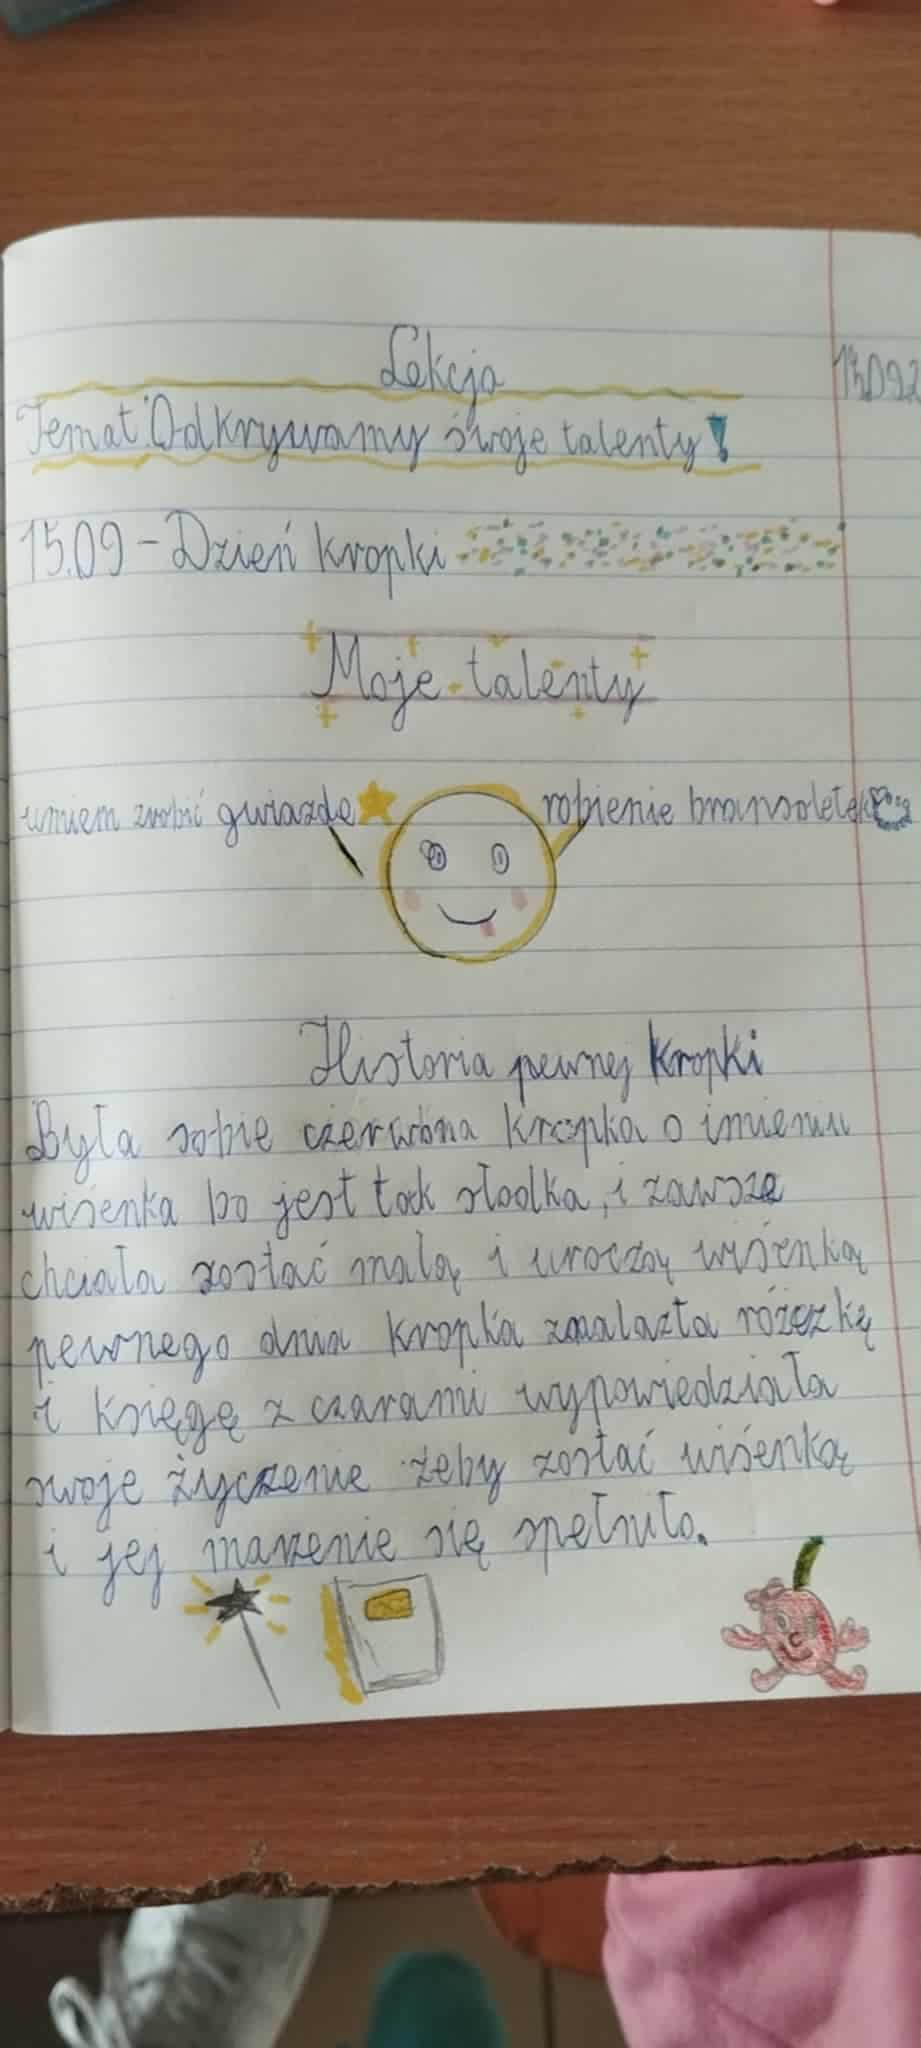 Lekcja
Temat: Odkrywamy swoje talenty!
15.09 - Dzień kropki
Moje talenty
umiem zrobić gwiazdę
robienie bransoletek
Historia pewnej kropki
Była sobie czerwona kropka o imieniu
wisenka bo jest tak słodka, i zawsze
chciała zostać małą i uroczą wisienką
pewnego dnia kropka znalazła różczkę
i księgę z czarami wypowiedziała
swoje życzenie żeby zostać wisienką
i jej marzenie się spełniło.